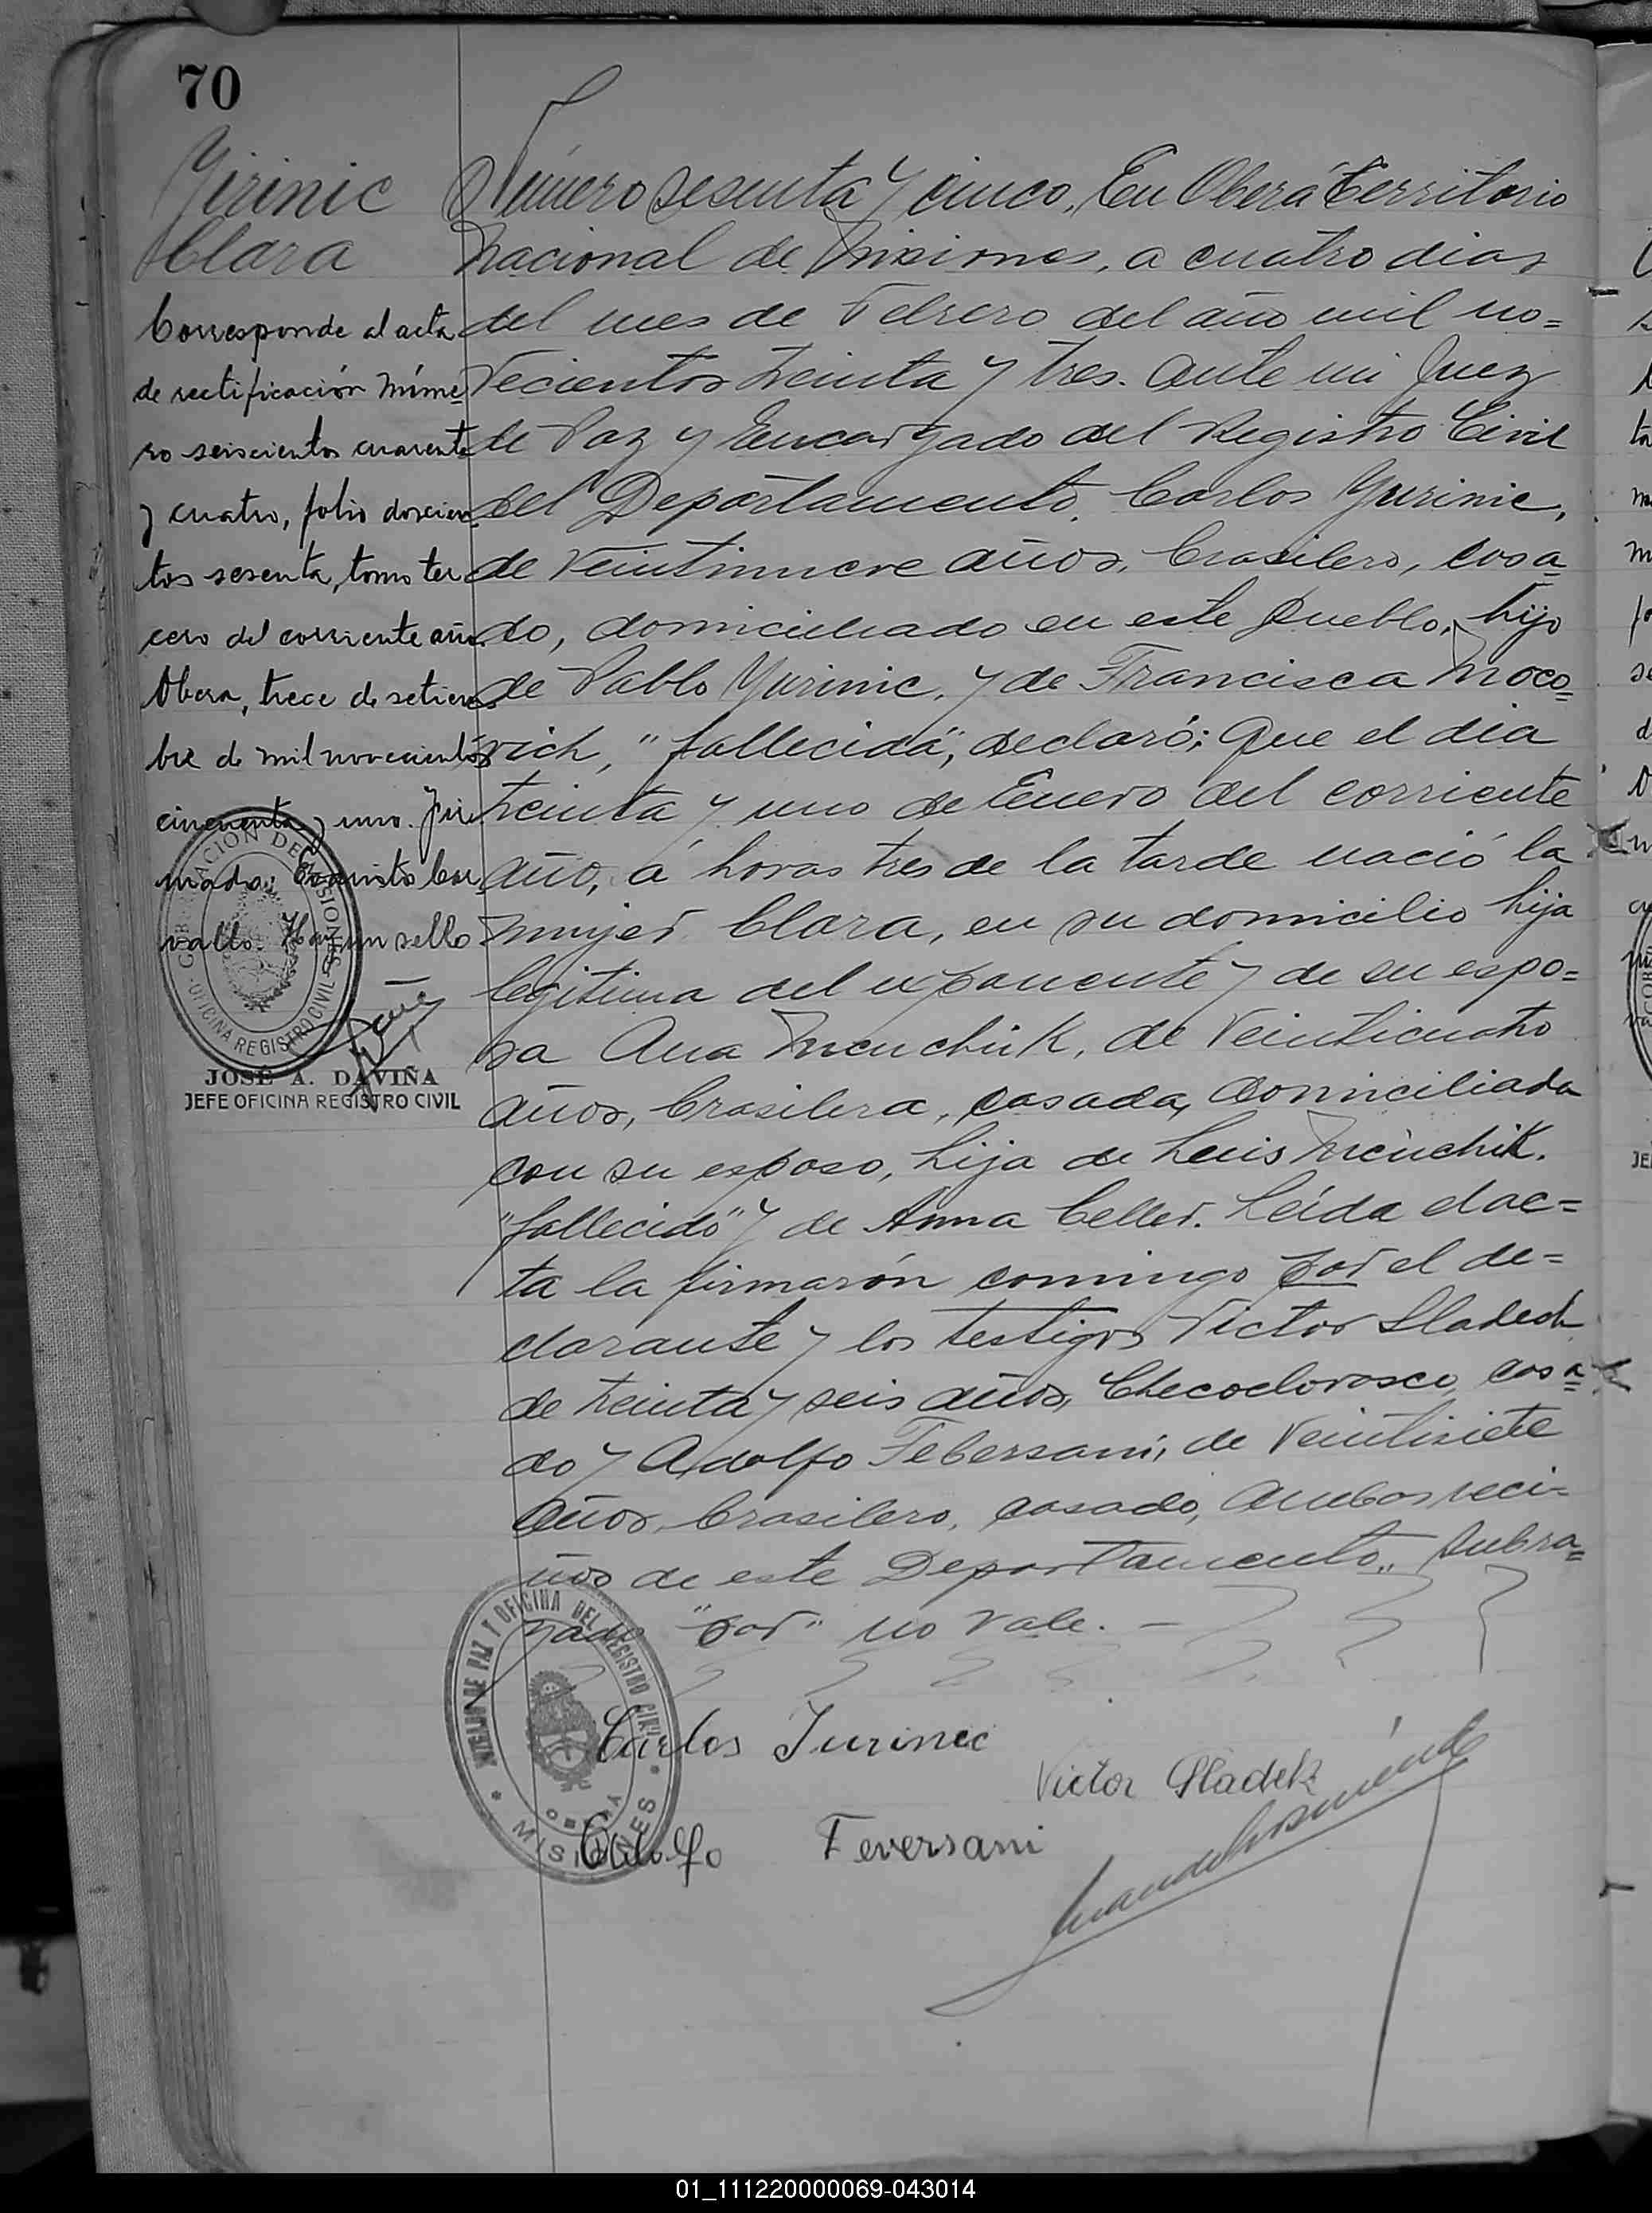 70
Yirinic
Clara
Corresponde al acta
de rectificación núme-
ro seiscientos cuarenta
y cuatro, folio doscien-
tos sesenta, tomo ter-
cero del corriente año.
Obera, trece de setiem-
bre de mil novecientos
cincuenta y uno. Fir-
mado: Evaristo Car-
vallo. Hay un sello
GOBERNACION DE MISIONES
OFICINA REGISTRO CIVIL
JOSÉ A. DAVIÑA
JEFE OFICINA REGISTRO CIVIL
Número sesenta y cinco, En Oberá Territorio
Nacional de Misiones, a cuatro dias
del mes de Febrero del año mil no=
vecientos treinta y tres. Ante mi Juez
de Paz y Encargado del Registro Civil
del Departamento, Carlos Yurinic,
de veintinueve años, brasilero, casa=
do, domiciliado en este pueblo, hijo
de Pablo Yurinic, y de Francisca Moco=
vich, "fallecida", declaró; Que el dia
treinta y uno de Enero del corriente
año, á horas tres de la tarde nació la
mujer Clara, en su domicilio hija
legitima del exponente y de su espo=
sa Ana Menchik, de veinticuatro
años, brasilera, casada, domiciliada
con su esposo, hija de Luis Menchik.
"fallecido" y de Anna Celler. Leída el ac=
ta la firmarón comingo por el de=
clarante y los testigos Victor Sladech
de treinta y seis años, Checoclovasco, casa=
do y Adolfo Febersani, de veintisiete
años, brasilero, casado, ambos veci=
nos de este Departamento., Subra=
yado "por" no vale. -
JUZGADO DE PAZ Y OFICINA DEL REGISTRO CIVIL
OBERÁ
MISIONES
Carlos Jurinic
Victor Sladek
Adolfo Feversani